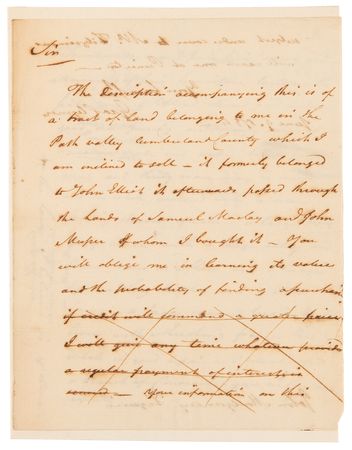 Sir
The Description accompanying this is of
a tract of Land belonging to me in the
Path valley Cumberland County which I
am inclined to sell – it formerly belonged
to John Elliot it afterwards passed through
the hands of Samuel Maclay and John
Musser of whom I bought it – You
will oblige me in learning its value
and the probability of finding a purchaser
if credit will command a great price
I will give any time whatever provided
a regular payment of interest is
secured – Your information on this